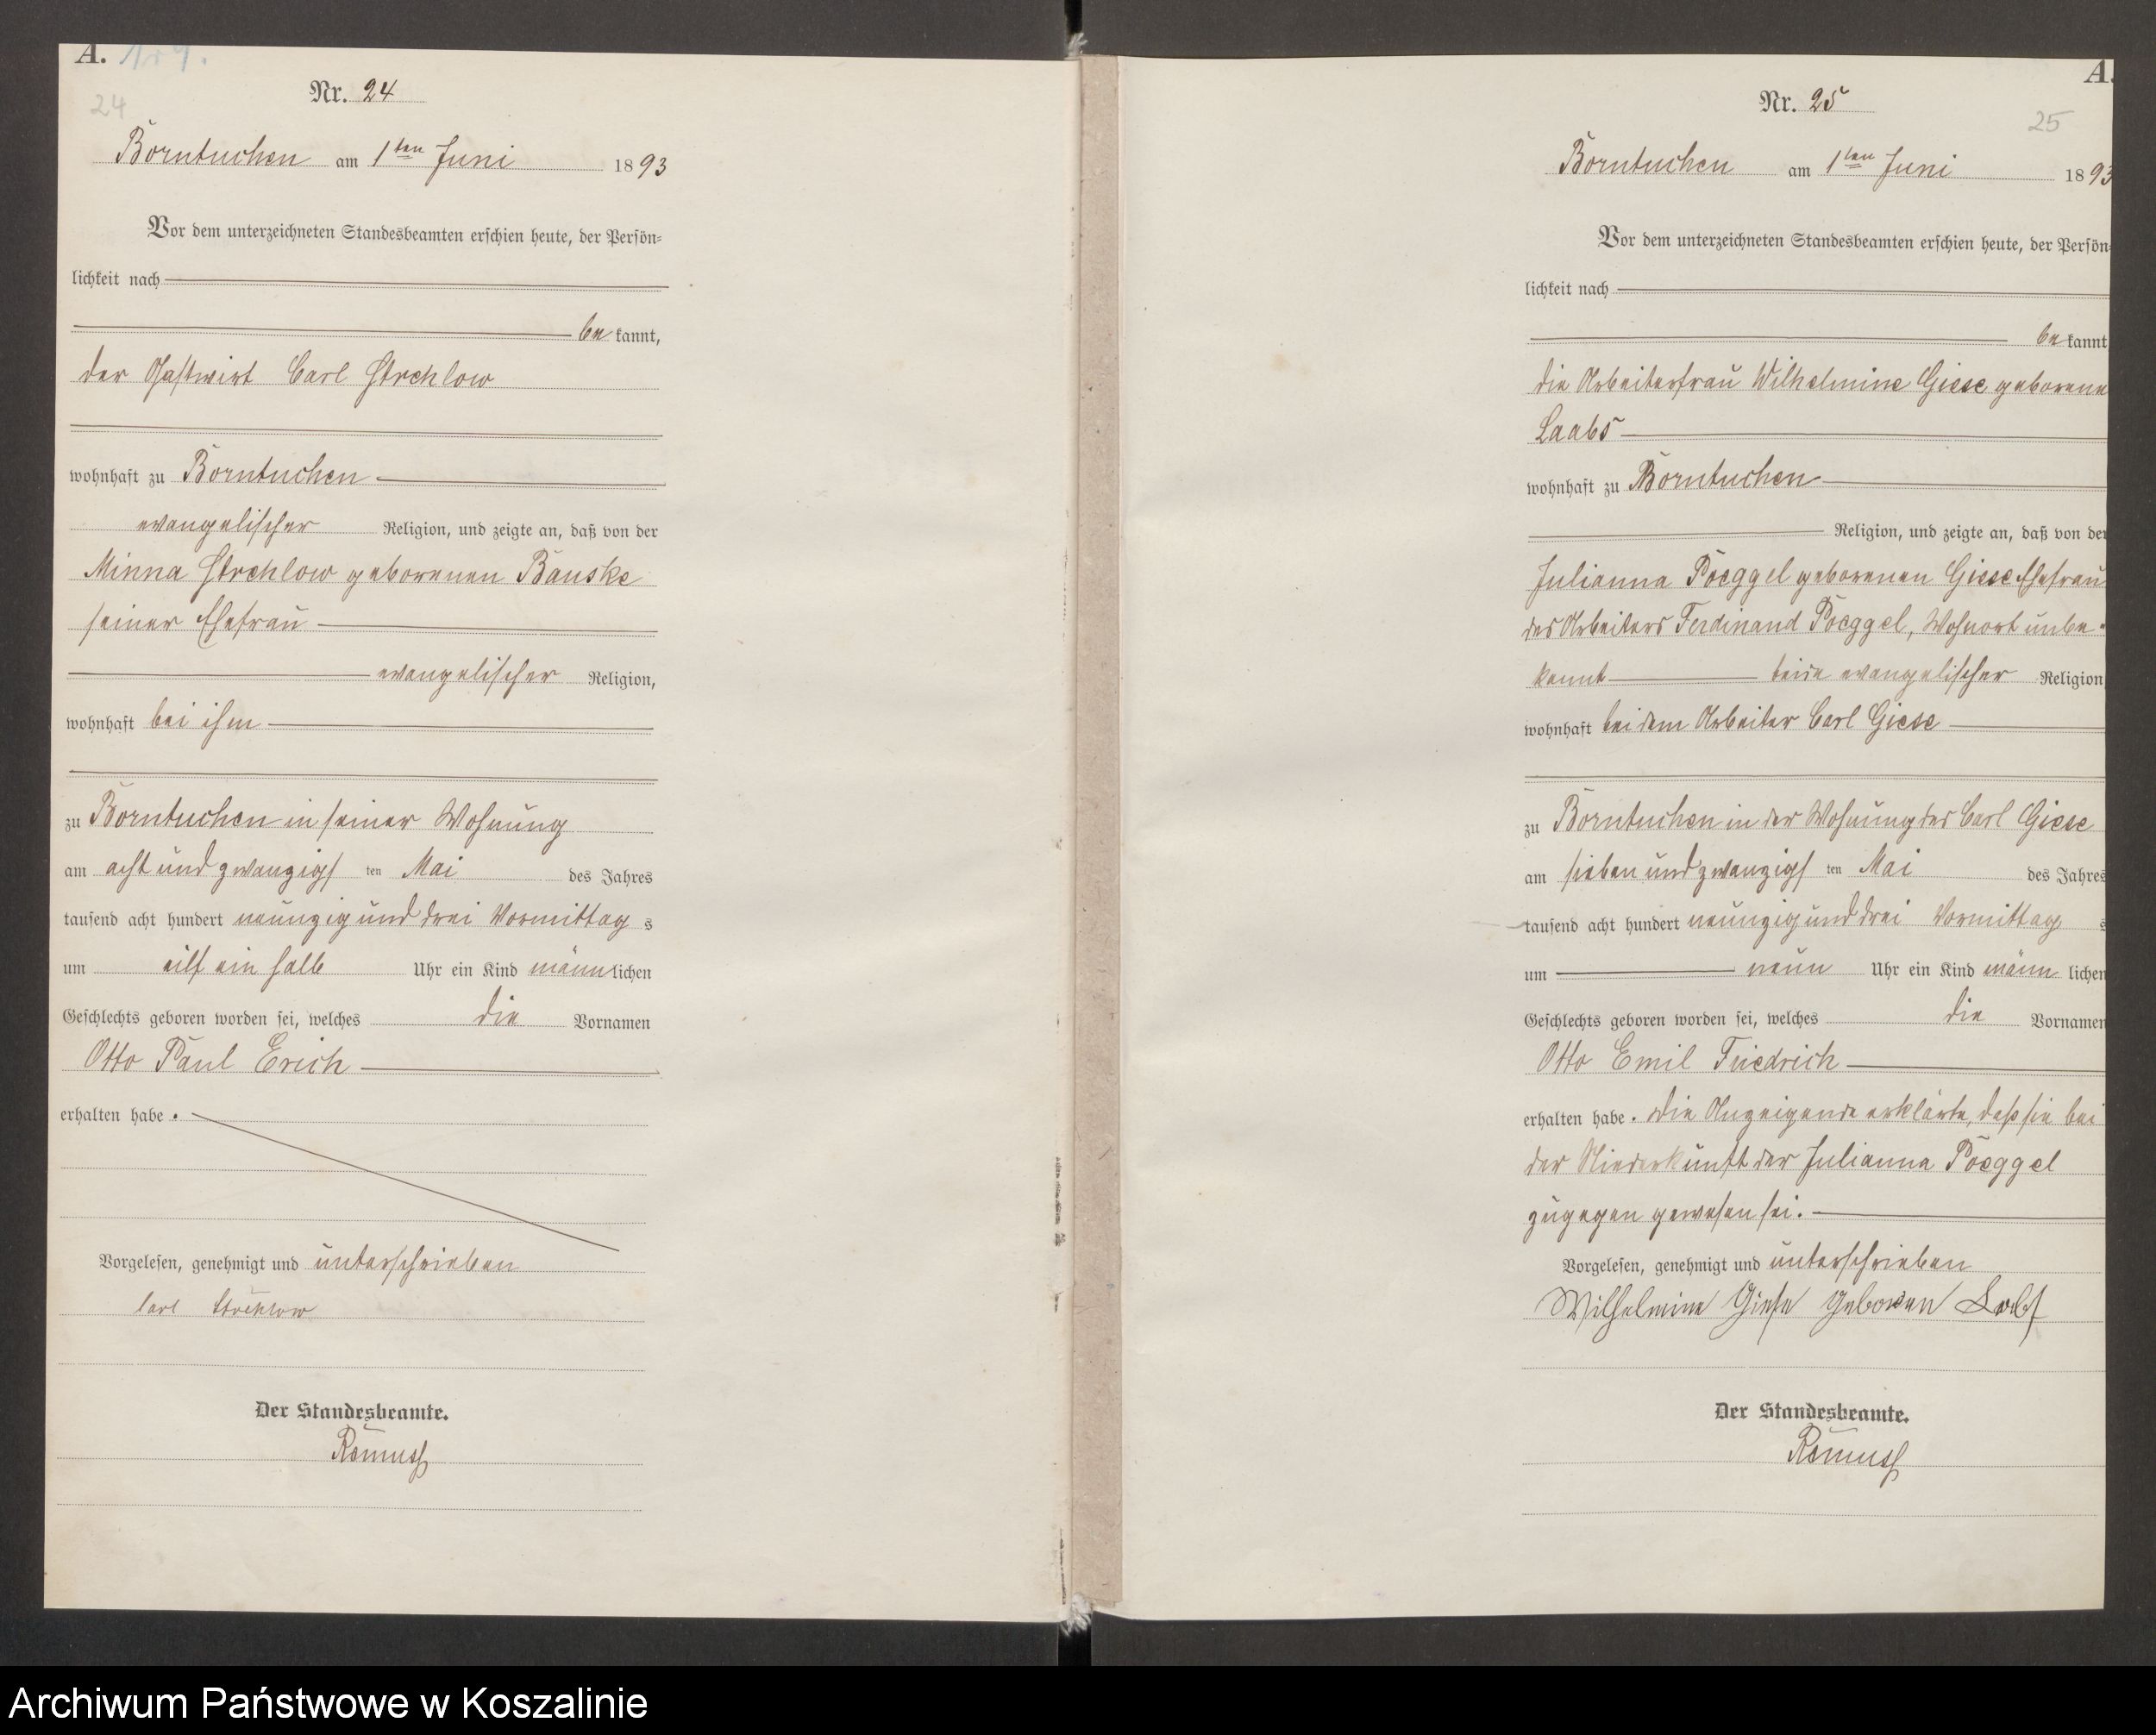 A.
Nr. 24
24
Borntuchen am 1ten Juni 1893
Vor dem unterzeichneten Standesbeamten erschien heute, der Persön-
lichkeit nach
be kannt,
der Gastwirt Carl Strehlow
wohnhaft zu Borntuchen
evangelischer Religion, und zeigte an, daß von der
Minna Strehlow geborenen Bauske
seiner Ehefrau
evangelischer Religion,
wohnhaft bei ihm
zu Borntuchen in seiner Wohnung
am acht und zwanzigs ten Mai des Jahres
tausend acht hundert neunzig und drei Vormittag s
um eilf ein halb Uhr ein Kind männlichen
Geschlechts geboren worden sei, welches die Vornamen
Otto Paul Erich
erhalten habe.
Vorgelesen, genehmigt und unterschrieben
Carl Strehlow
Der Standesbeamte.
Remuss
A.
Nr. 25
25
Borntuchen am 1ten Juni 1893
Vor dem unterzeichneten Standesbeamten erschien heute, der Persön-
lichkeit nach
be kannt
die Arbeiterfrau Wilhelmine Giese geborene
Laabs
wohnhaft zu Borntuchen
Religion, und zeigte an, daß von der
Julianna Poeggel geborenen Giese Ehefrau
des Arbeiters Ferdinand Poeggel, Wohnort unbe-
kannt beide evangelischer Religion
wohnhaft bei dem Arbeiter Carl Giese
zu Borntuchen in der Wohnung des Carl Giese
am sieben und zwanzigs ten Mai des Jahres
tausend acht hundert neunzig und drei Vormittag s
um neun Uhr ein Kind männ lichen
Geschlechts geboren worden sei, welches die Vornamen
Otto Emil Friedrich
erhalten habe. Die Anzeigende erklärte, daß sie bei
der Niederkunft der Julianna Poeggel
zugegen gewesen sei.
Vorgelesen, genehmigt und unterschrieben
Wilhelmine Giese geboren
Der Standesbeamte.
Remuss
Archiwum Państwowe w Koszalinie